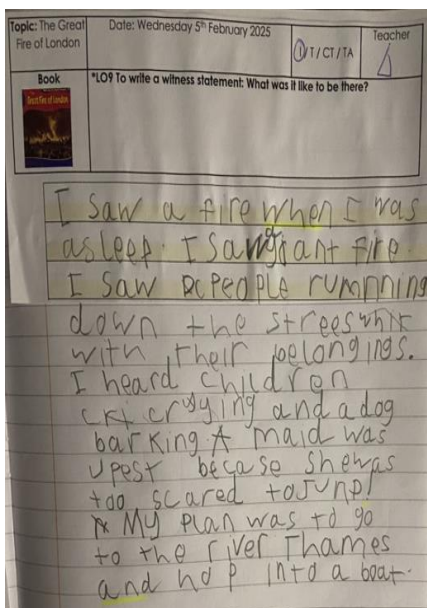 Topic: The Great
Fire of London
Date: Wednesday 5th February 2025
I / T / CT / TA
Teacher
Book
Great Fire of London
*LO9 To write a witness statement: What was it like to be there?
I saw a fire when I was
asleep. I saw a giant fire.
I saw people rumnning
down the strees
with their belongings.
I heard children
crying and a dog
barking. A maid was
upest becase she was
too scared to Junp!
My plan was to go
to the river Thames
and hop into a boat.